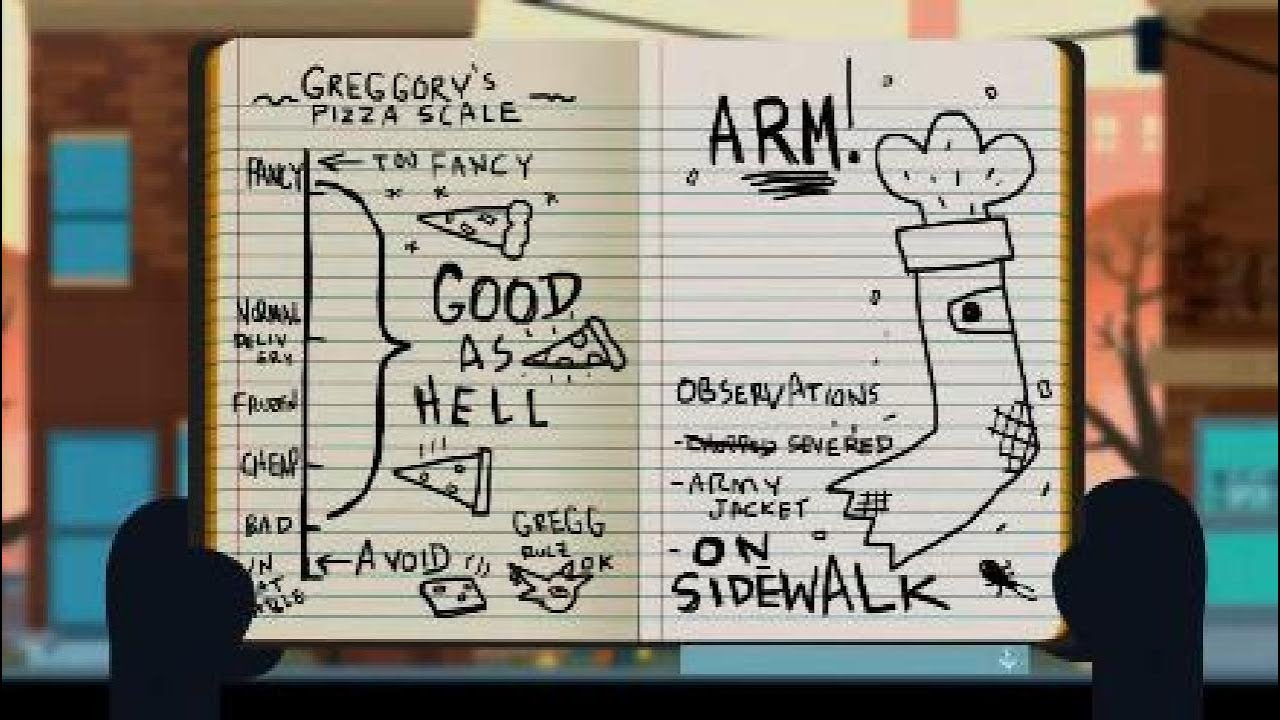 GREGGORY'S
PIZZA SCALE
FANCY
← TOO FANCY
GOOD
AS
HELL
NORMAL
DELIV
ERY
FROZEN
CHEAP
BAD
← AVOID
IN
GREGG
RULZ
OK
ARM!
OBSERVATIONS
- SEVERED
- ARMY
JACKET
- ON
SIDEWALK